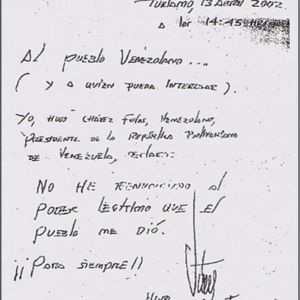 Turiamo, 13 Abril 2002
a las 14:45
Al pueblo Venezolano...
(y a quien pueda interesar).
Yo, Hugo Chávez Frías, Venezolano,
Presidente de la República Bolivariana
de Venezuela, declaro:
No he renunciado al
poder legítimo que el
pueblo me dió.
¡¡Para siempre!!
Hugo